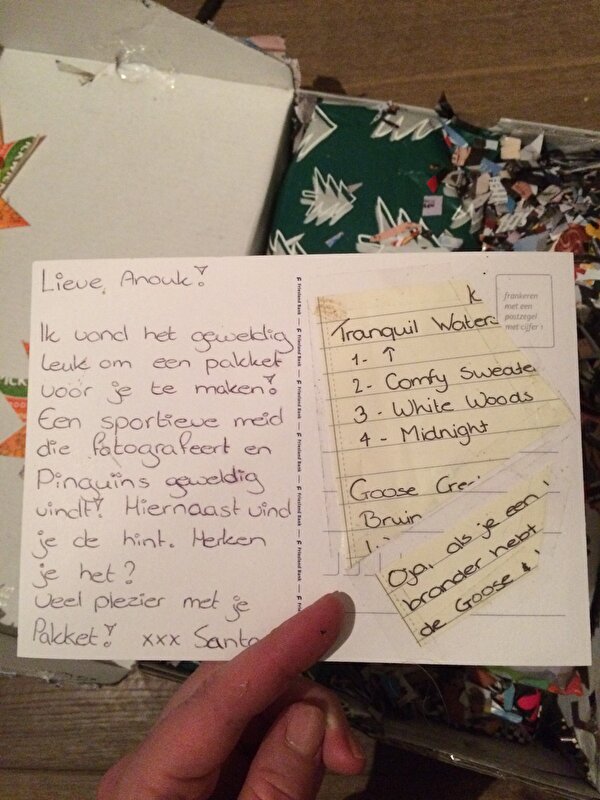 Lieve, Anouk!
Ik vond het geweldig
leuk om een pakket
voor je te maken!
Een sportieve meid
die fotografeert en
Pinguïns geweldig
vindt! Hiernaast vind
je de hint. Herken
je het?
Veel plezier met je
Pakket! xxx Santa
Friesland Bank — Friesland Bank — Friesland Bank — Friesland Bank — Friesland Bank — Friesland Bank — Friesland Bank
k
Tranquil Waters
1- ↑
2- Comfy Sweate
3 - White Woods
4 - Midnight
Goose Cre
Bruin
1.
Oja, als je een
brander hebt
de Goose &
frankeren
met een
postzegel
met cijfer 1